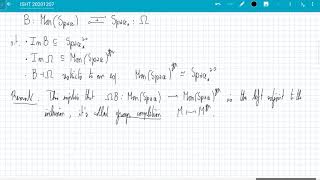 ISHT 20201207
B : Mon(Spaces) ⇄ Spaces_* : Ω
st. • Im B ⊆ Spaces_*^{≥0}
• Im Ω ⊆ Mon(Spaces)^{gp}
• B ⊣ Ω restricts to an eq. Mon(Spaces)^{gp} ≃ Spaces_*^{≥0}
Remark: This implies that ΩB : Mon(Spaces) → Mon(Spaces)^{gp} is the left adjoint to the
inclusion, it's called group completion M ↦ M^{gp}.